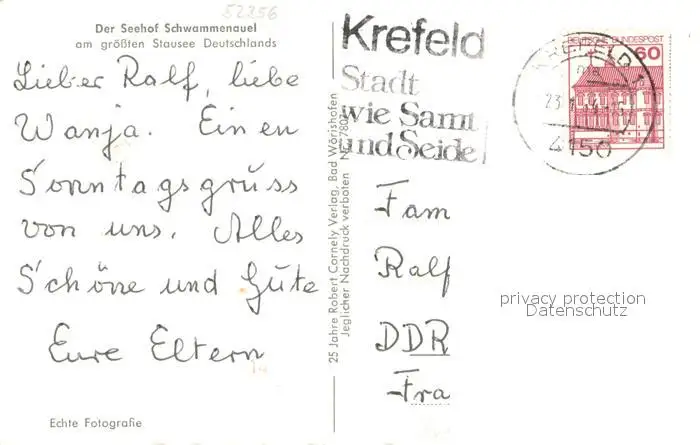 52256
Der Seehof Schwammenauel
am größten Stausee Deutschlands
Lieber Ralf, liebe
Wanja. Einen
Sonntagsgruss
von uns. Alles
Schöne und Gute
Eure Eltern
Echte Fotografie
25 Jahre Robert Cornely Verlag, Bad Wörishofen
Jeglicher Nachdruck verboten
Krefeld
Stadt
wie Samt
und Seide
KREFELD 1
4150
DEUTSCHE BUNDESPOST
60
Fam
Ralf
DDR
Fra
privacy protection
Datenschutz